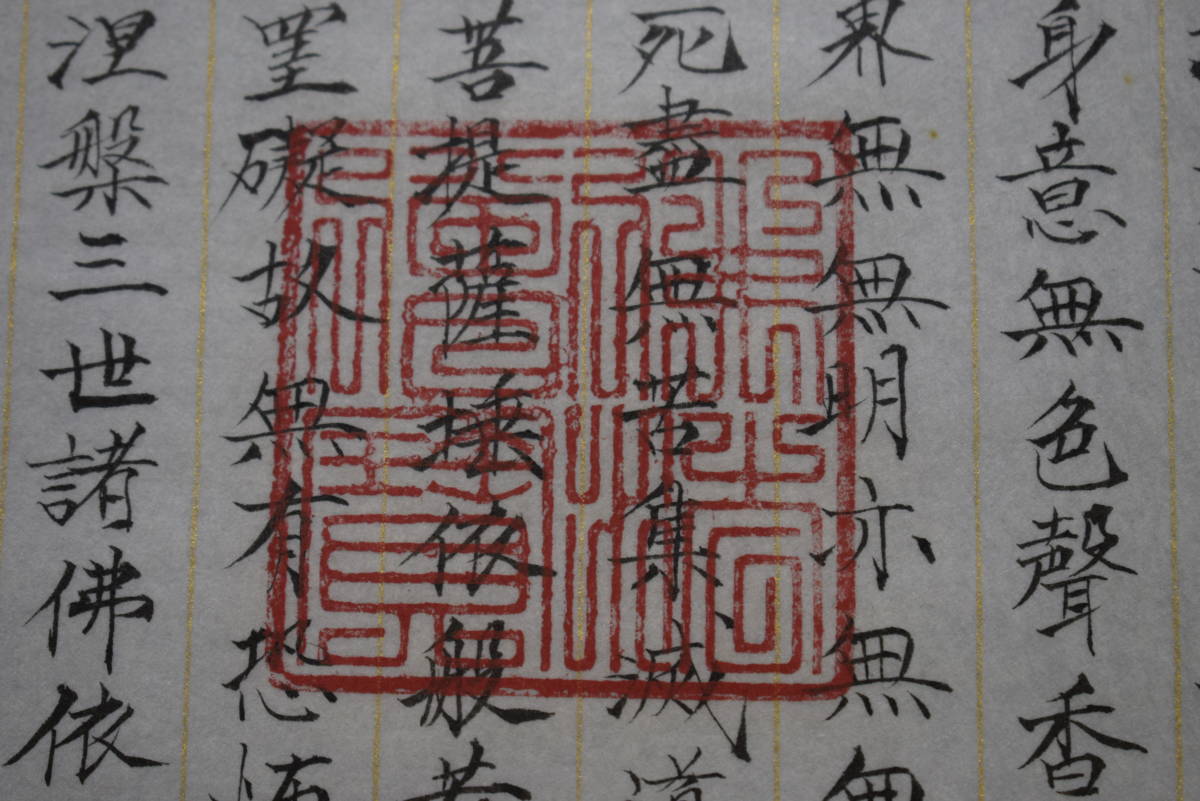 身意無色聲香
界無無明亦無無
死盡無苦集滅道
菩提薩埵依般若
罣礙故無有恐怖
涅槃三世諸佛依